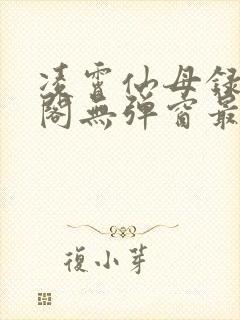 凌霄仙母録
閣無彈窗最
復小芽